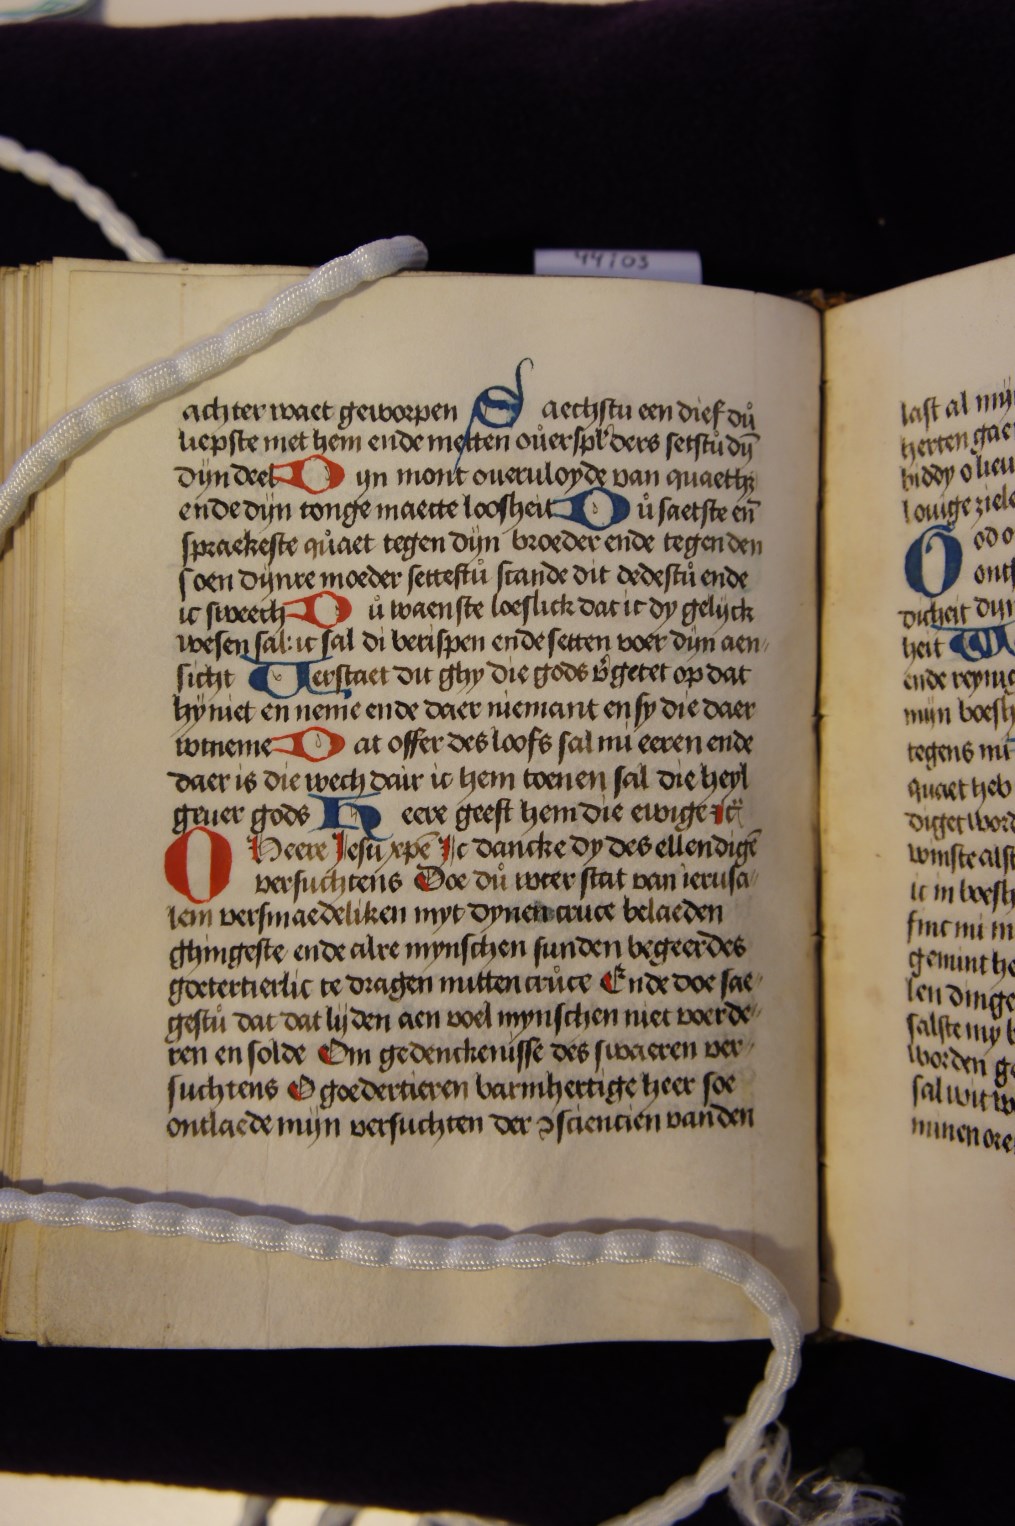 44103
achter waet geworpen Saechstu een dief dů
liepste met hem ende metten oůerspḷders setstů dȳ
dijn deel Dijn mont oueruloyde van quaethȝ
ende dijn tonge maecte loosheit Dů saetste en̄
spraekeste qůaet tegen dijn broeder ende tegen den
soen dijnre moeder settestů scande dit dedestů ende
ic sweech Dů waenste loeslick dat ic dy gelijck
wesen sal: ic sal di berispen ende setten voer dijn aen-
sicht Verstaet dit ghy die gods v̓getet op dat
hy niet en neme ende daer niemant en sy die daer
wtneme Dat offer des loofs sal mi eeren ende
daer is die wech dair ic hem toenen sal die heyl
geuer gods Heere geeft hem die ewige rc̄
O Heere Jesu xpē Jc dancke dy des ellendigē
versuchtens Doe dů wter stat van ierusa-
lem versmaedeliken myt dynen cruce belaeden
ghingeste ende alre mynschen sunden begeerdes
goetertierlic te dragen mitten crůce Ende doe sae-
gestů dat dat lijden aen voel mynschen niet voerde-
ren en solde Om gedenckenisse des swaeren ver-
suchtens O goedertieren barmhertige heer soe
ontlaede mijn versuchten der ɔsciencien van den
last al
herten
biddy o
Godo
dicheit
heit
ende
mijn
tegens mi
quaet heb
winste
ic in
len dinge
salste my
worden
sal